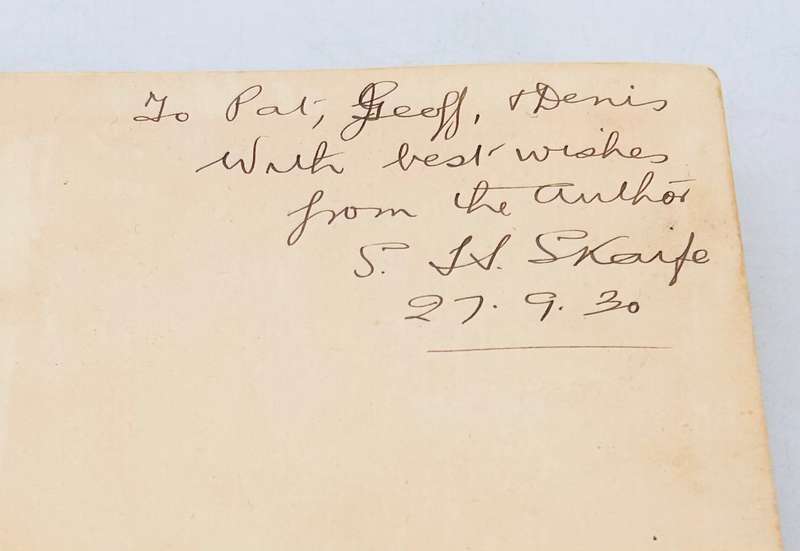 To Pat, Geoff, + Denis
With best wishes
from the author
S. H. Skaife
27. 9. 30